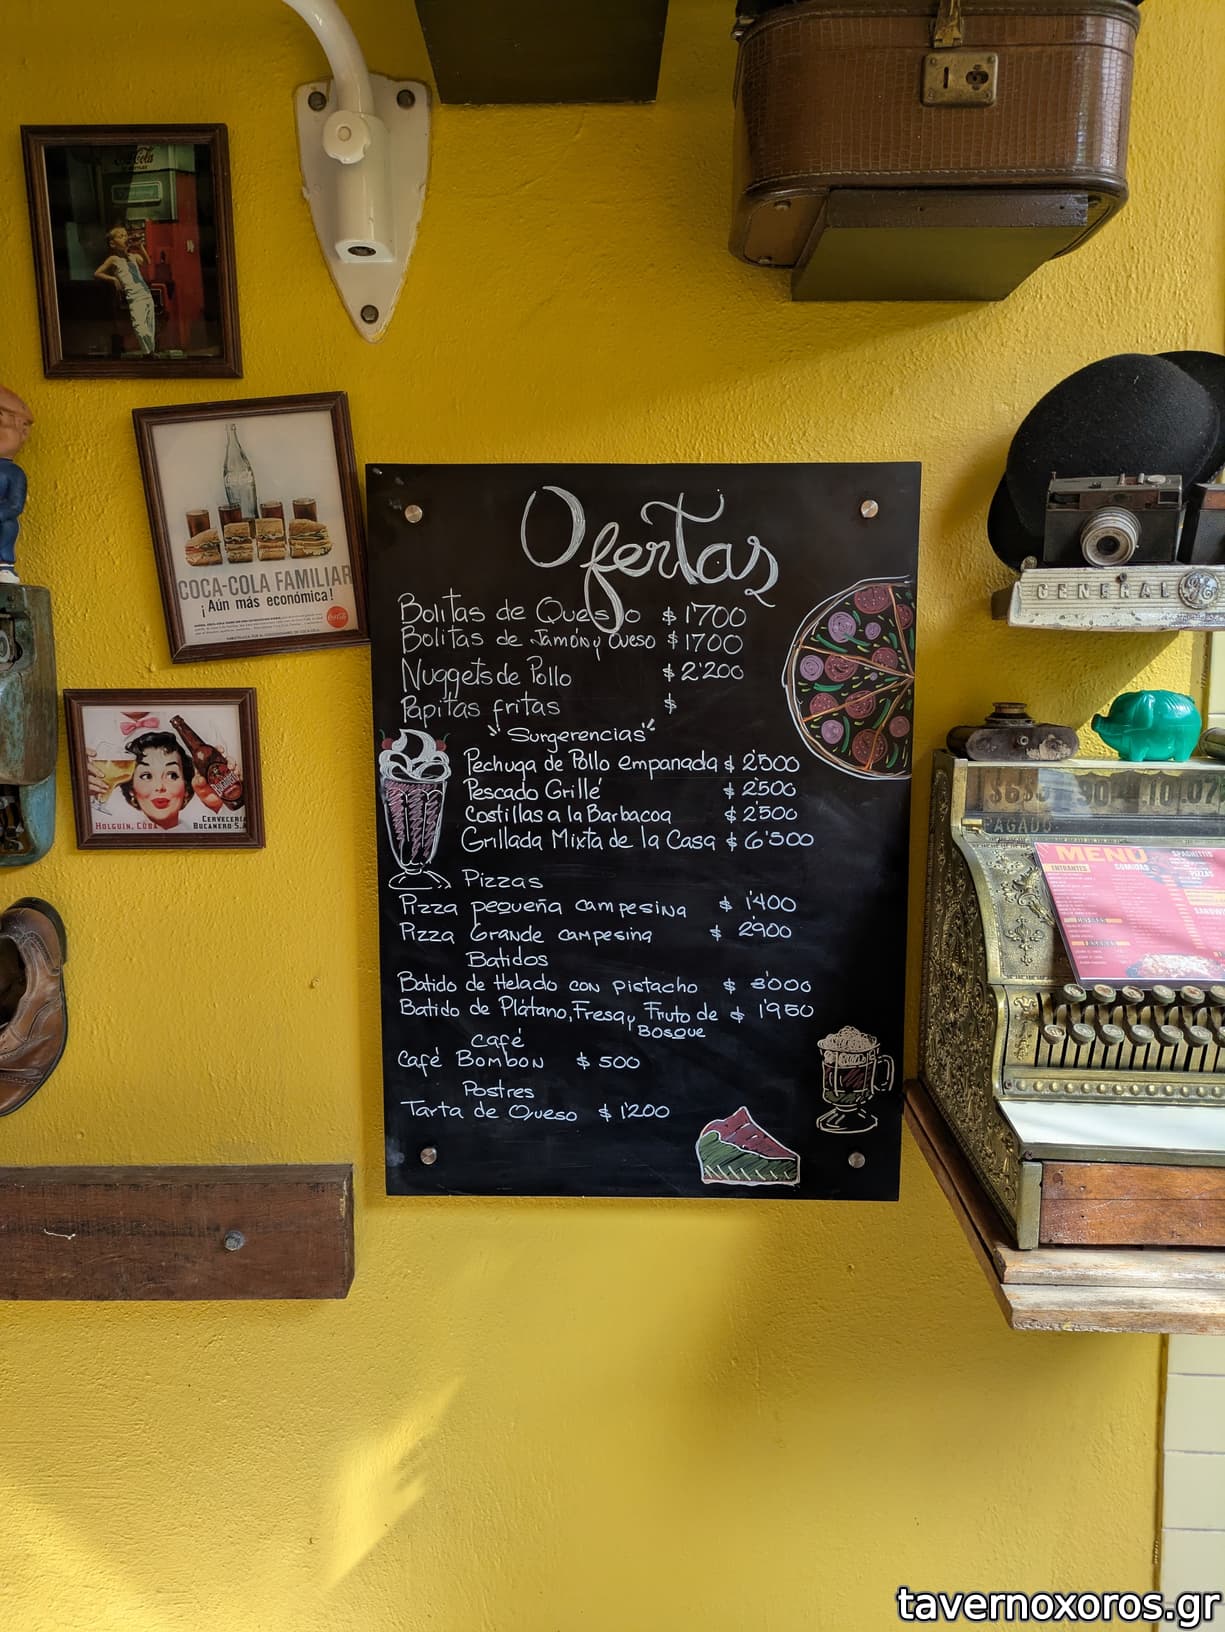 Coca-Cola
COCA-COLA FAMILIAR
¡Aún más económica!
Coca-Cola
HOLGUIN, CUBA
CERVECERÍA
BUCANERO S.A
Ofertas
Bolitas de Queso $ 1'700
Bolitas de Jamón y Queso $ 1'700
Nuggets de Pollo $ 2'200
Papitas fritas $
"Surgerencias"
Pechuga de Pollo empanada $ 2'500
Pescado Grillé $ 2'500
Costillas a la Barbacoa $ 2'500
Grillada Mixta de la Casa $ 6'500
Pizzas
Pizza pequeña campesina $ 1'400
Pizza Grande campesina $ 2'900
Batidos
Batido de Helado con pistacho $ 3'000
Batido de Plátano, Fresa y Fruto de $ 1'950
Bosque
Café
Café Bombon $ 500
Postres
Tarta de Queso $ 1'200
GENERAL
PAGADO
MENU
ENTRANTES
COMIDAS
SPAGHETTIS
PIZZAS
tavernoxoros.gr